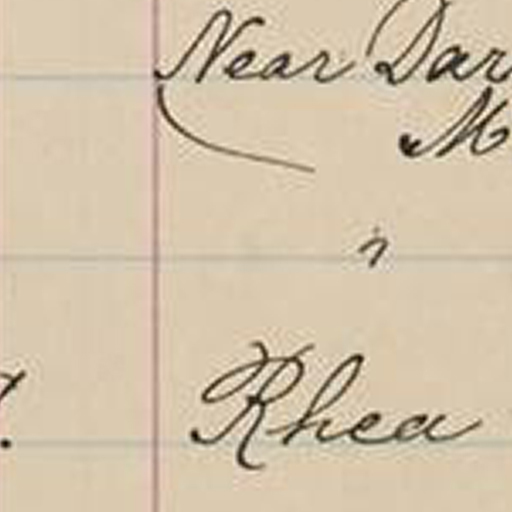 Near Dar
M
"
Rhea